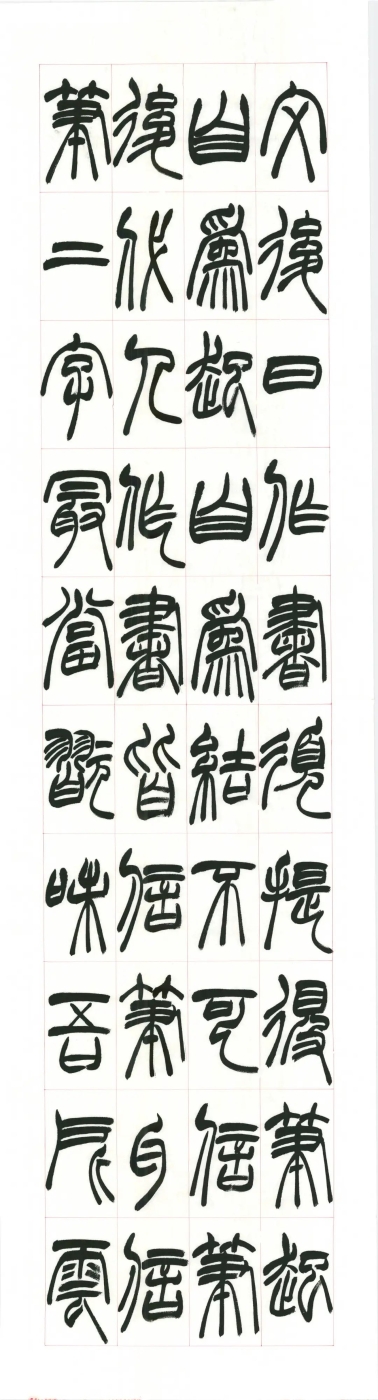 文後曰作書須提得筆起
自為起自為結不可信筆
後代人作書皆信筆耳信
筆二字最當翫味吾所云